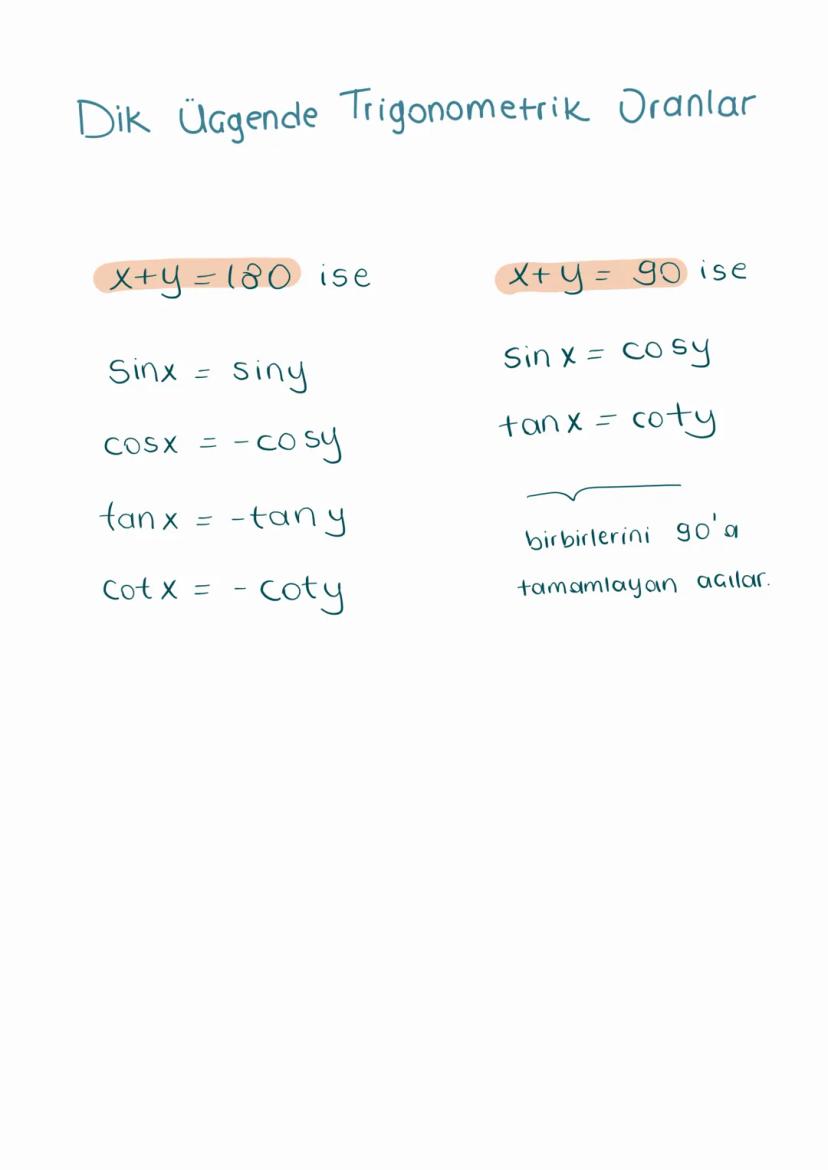 Dik Üçgende Trigonometrik Oranlar
x+y = 180 ise
sinx = siny
cosx = -cosy
tanx = -tany
cotx = - coty
x+y = 90 ise
sinx = cosy
tanx = coty
birbirlerini 90'a
tamamlayan açılar.